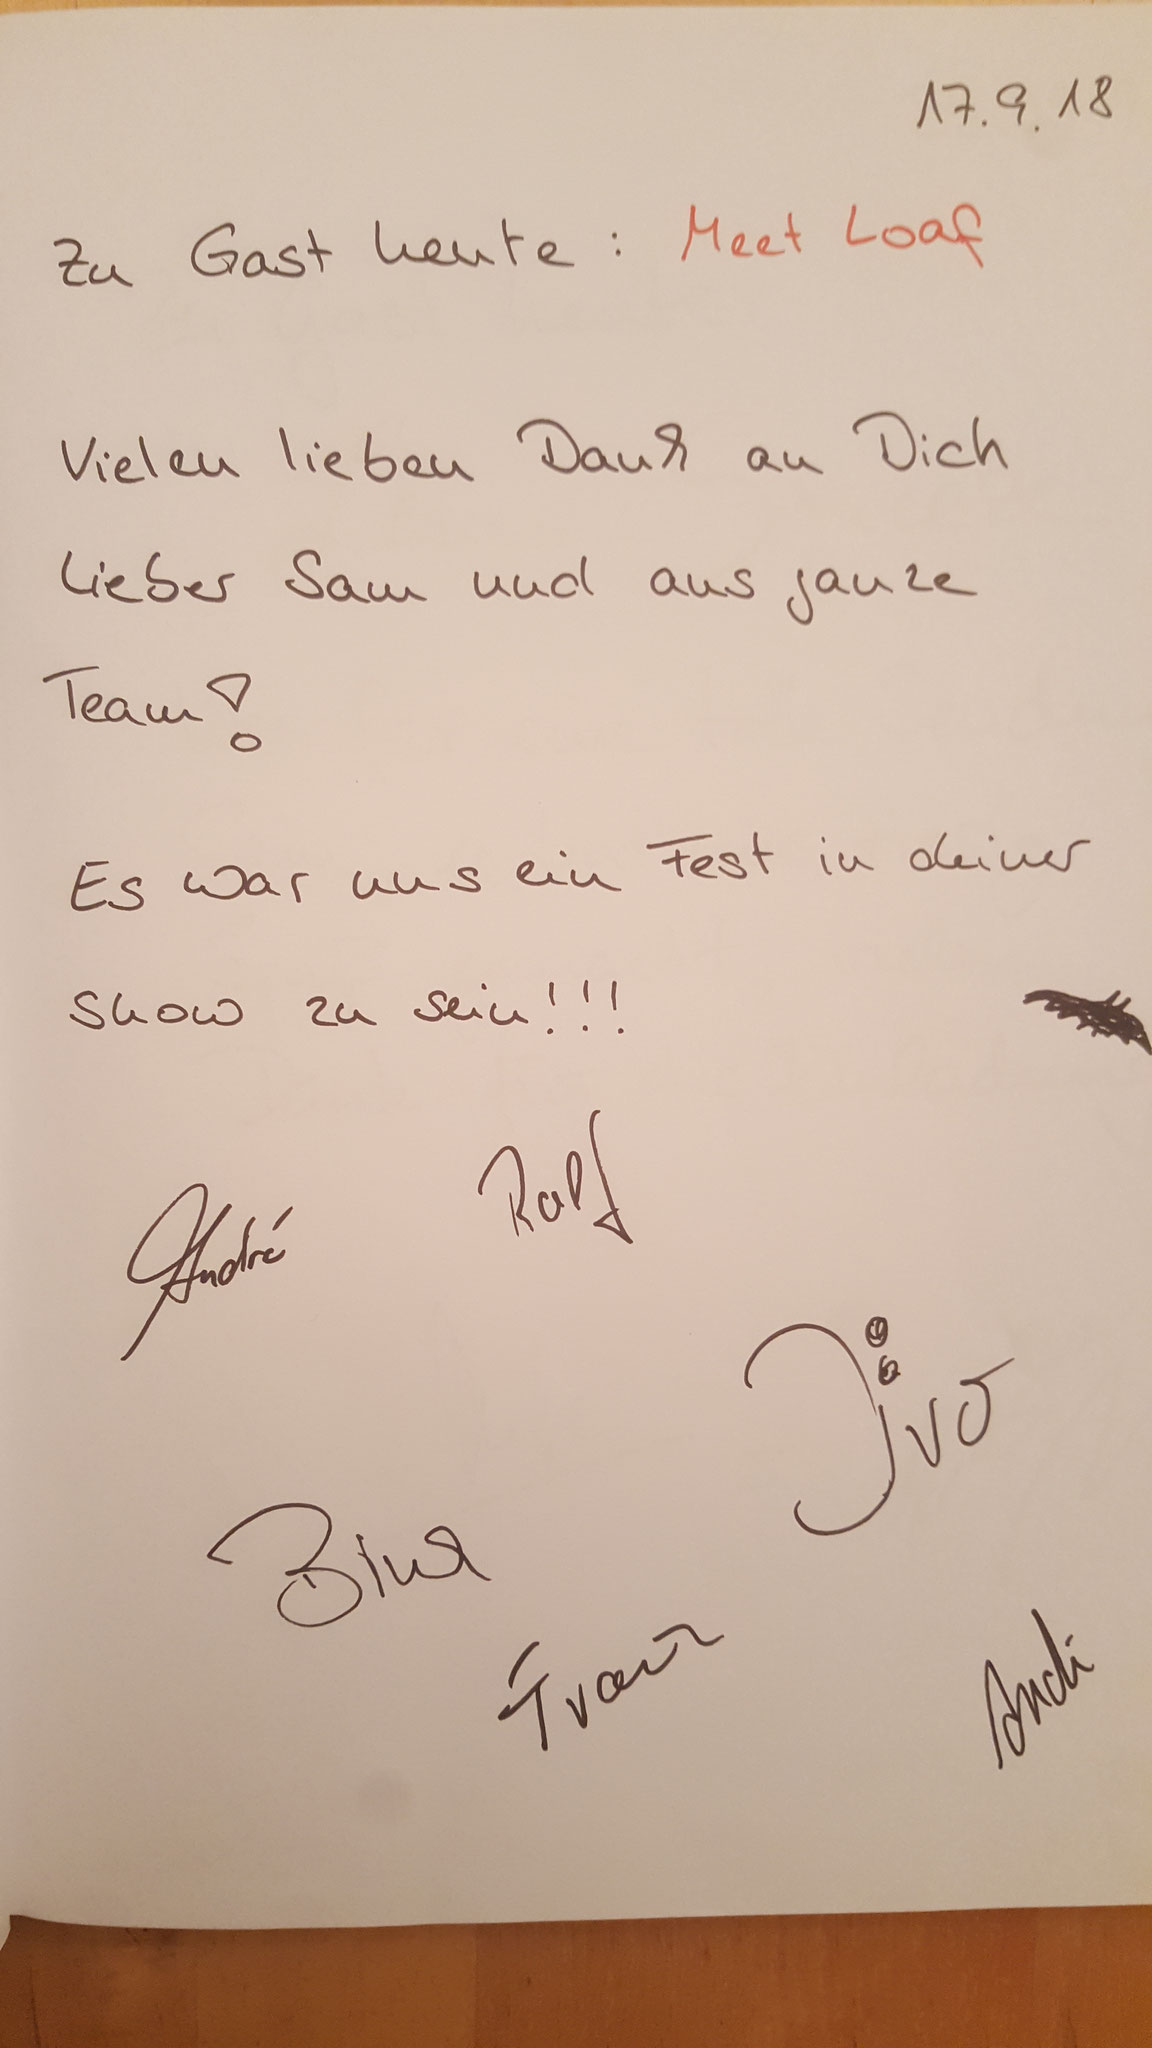 17.9.18
Zu Gast heute: Meet Loaf
Vielen lieben Dank an Dich
lieber Sam und ans ganze
Team!
Es war uns ein Fest in deiner
Show zu sein!!!
Ralf
André
Ivo
Bina
Franz
Andi